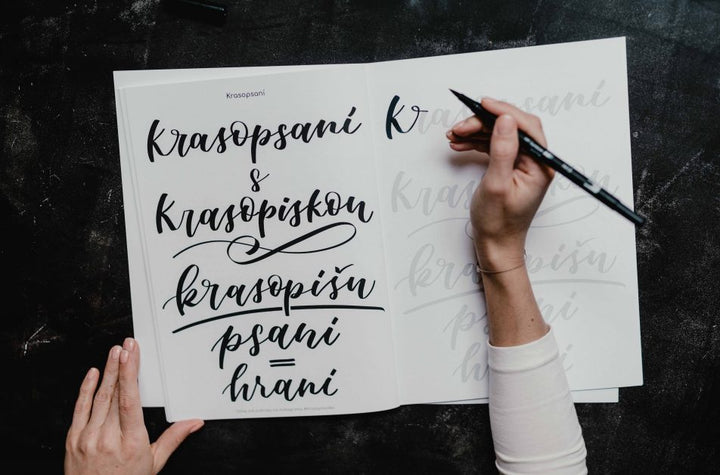 Krasopsaní
krasopsaní
s
Krasopiskou
krasopíšu
psaní
=
hraní
Krasopsaní
Krasopiskou
krasopíšu
psaní
hraní